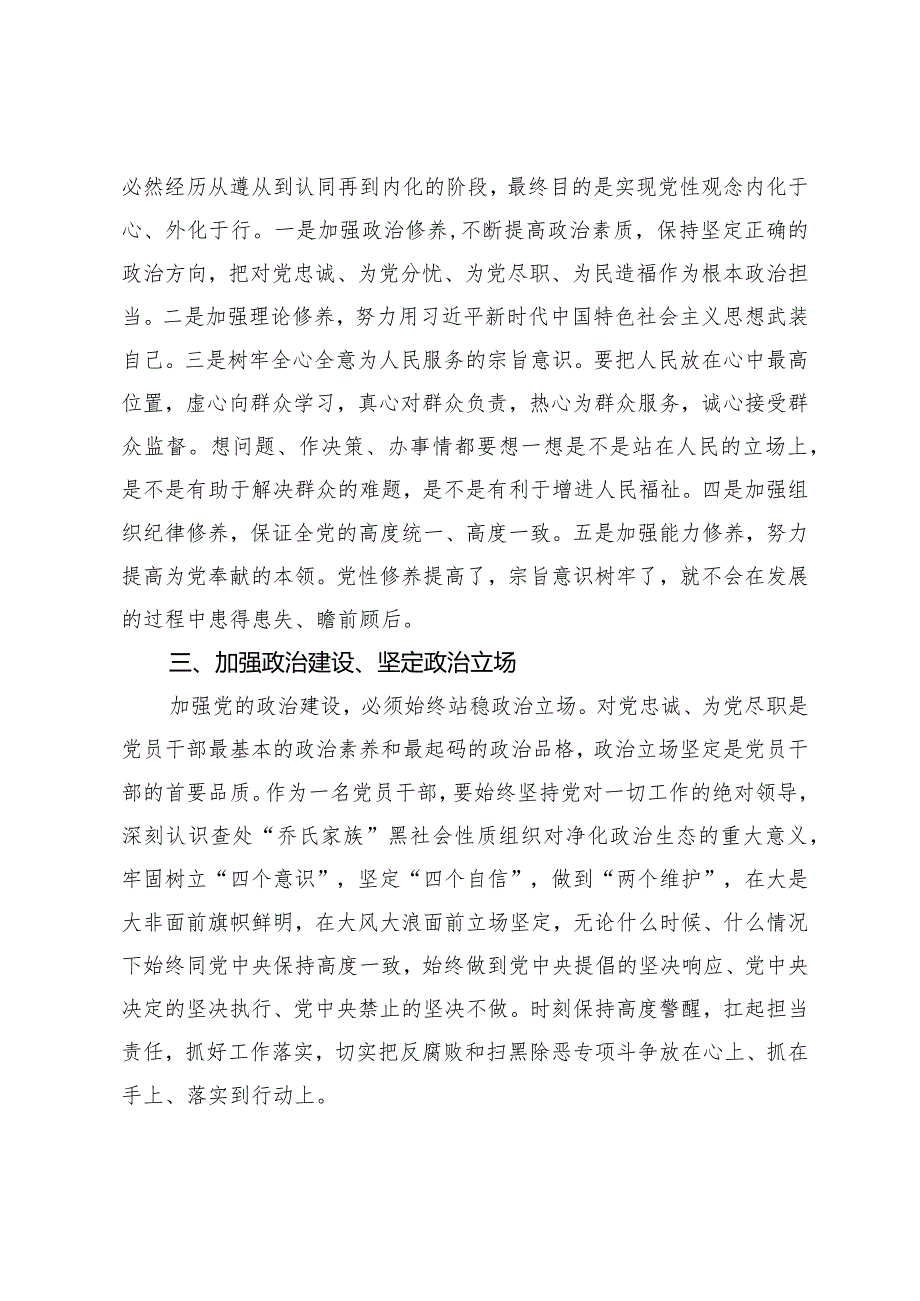 必然经历从遵从到认同再到内化的阶段，最终目的是实现党性观念内化于
心、外化于行。一是加强政治修养,不断提高政治素质，保持坚定正确的
政治方向，把对党忠诚、为党分忧、为党尽职、为民造福作为根本政治担
当。二是加强理论修养，努力用习近平新时代中国特色社会主义思想武装
自己。三是树牢全心全意为人民服务的宗旨意识。要把人民放在心中最高
位置，虚心向群众学习，真心对群众负责，热心为群众服务，诚心接受群
众监督。想问题、作决策、办事情都要想一想是不是站在人民的立场上，
是不是有助于解决群众的难题，是不是有利于增进人民福祉。四是加强组
织纪律修养，保证全党的高度统一、高度一致。五是加强能力修养，努力
提高为党奉献的本领。党性修养提高了，宗旨意识树牢了，就不会在发展
的过程中患得患失、瞻前顾后。
三、加强政治建设、坚定政治立场
加强党的政治建设，必须始终站稳政治立场。对党忠诚、为党尽职是
党员干部最基本的政治素养和最起码的政治品格，政治立场坚定是党员干
部的首要品质。作为一名党员干部，要始终坚持党对一切工作的绝对领导，
深刻认识查处“乔氏家族”黑社会性质组织对净化政治生态的重大意义，
牢固树立“四个意识”，坚定“四个自信”，做到“两个维护”，在大是
大非面前旗帜鲜明，在大风大浪面前立场坚定，无论什么时候、什么情况
下始终同党中央保持高度一致，始终做到党中央提倡的坚决响应、党中央
决定的坚决执行、党中央禁止的坚决不做。时刻保持高度警醒，扛起担当
责任，抓好工作落实，切实把反腐败和扫黑除恶专项斗争放在心上、抓在
手上、落实到行动上。